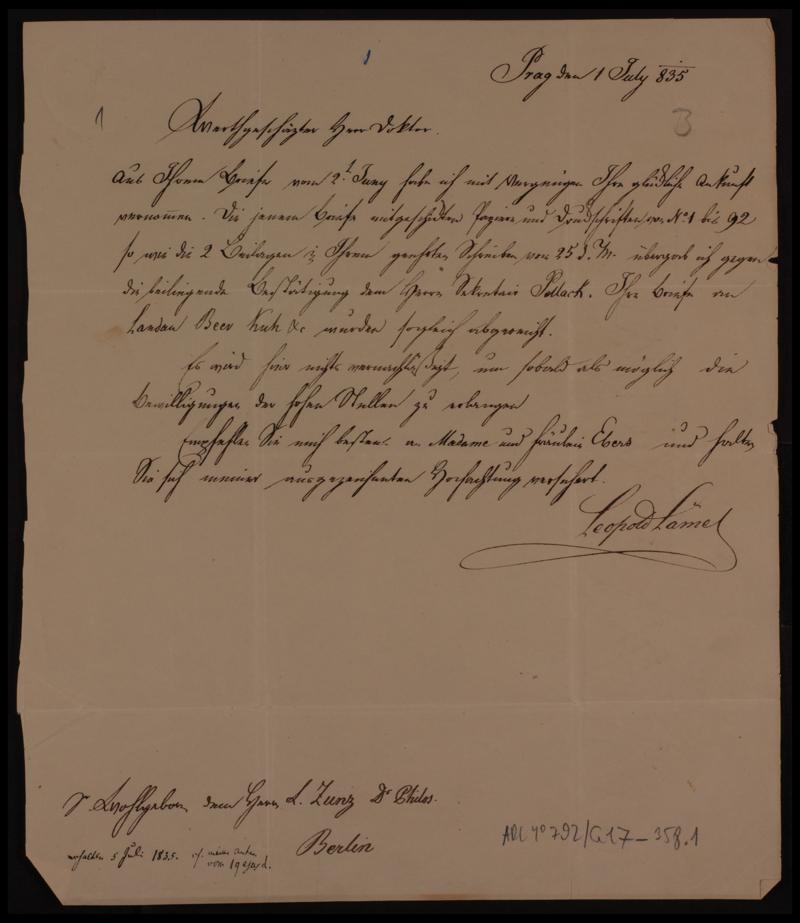 1
Prag den 1 July 835
1
B
Werthgeschäzter Herr Doktor.
Aus Ihrem Briefe vom 2t Juny habe ich mit Vergnügen Ihre glückliche Ankunft
vernommen. Die jenem Briefe mitgeschickten Papiere und Druckschriften von No 1 bis 92
so wie die 2 Beilagen in Ihrem geehrten Schreiben vom 25 d. M. übergab ich gegen
die beiliegende Bestätigung dem Herrn Sekretair Pollack. Ihre Briefe an
Landau Beer Kuh &c wurden sogleich abgereicht.
Es wird hier nichts vernachläßigt, um sobald als möglich die
Bewilligungen der hohen Stellen zu erlangen
Empfehlen Sie mich bestens an Madame und Fräulein Ebers und halten
Sie sich meiner ausgezeichneten Hochachtung versichert.
Leopold Lämel
Sr Wohlgeborn dem Herrn L. Zunz Dr Philos.
Berlin
erhalten 5 Juli 1835.
ARC 4o 792/G17-358.1